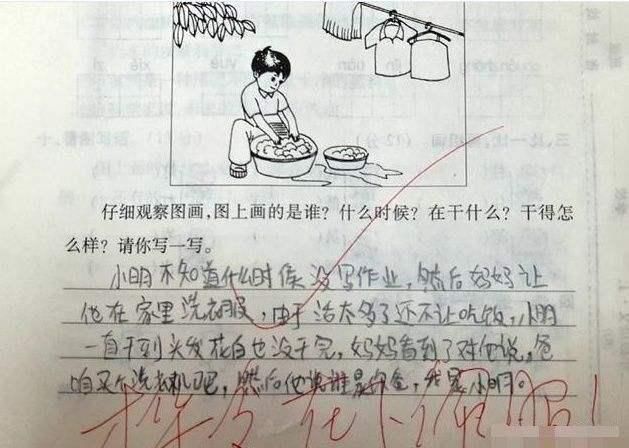 三、比一比,再组词。(12分)
仔细观察图画,图上画的是谁?什么时候?在干什么?干得怎
么样?请你写一写。
小明不知道什么时候没写作业,然后妈妈让
他在家里洗衣服,由于活太多了还不让吃饭,小明
一直干到头发花白也没干完,妈妈看到了对他说,爸
咱买个洗衣机吧,然后他说谁是你爸,我是小明。